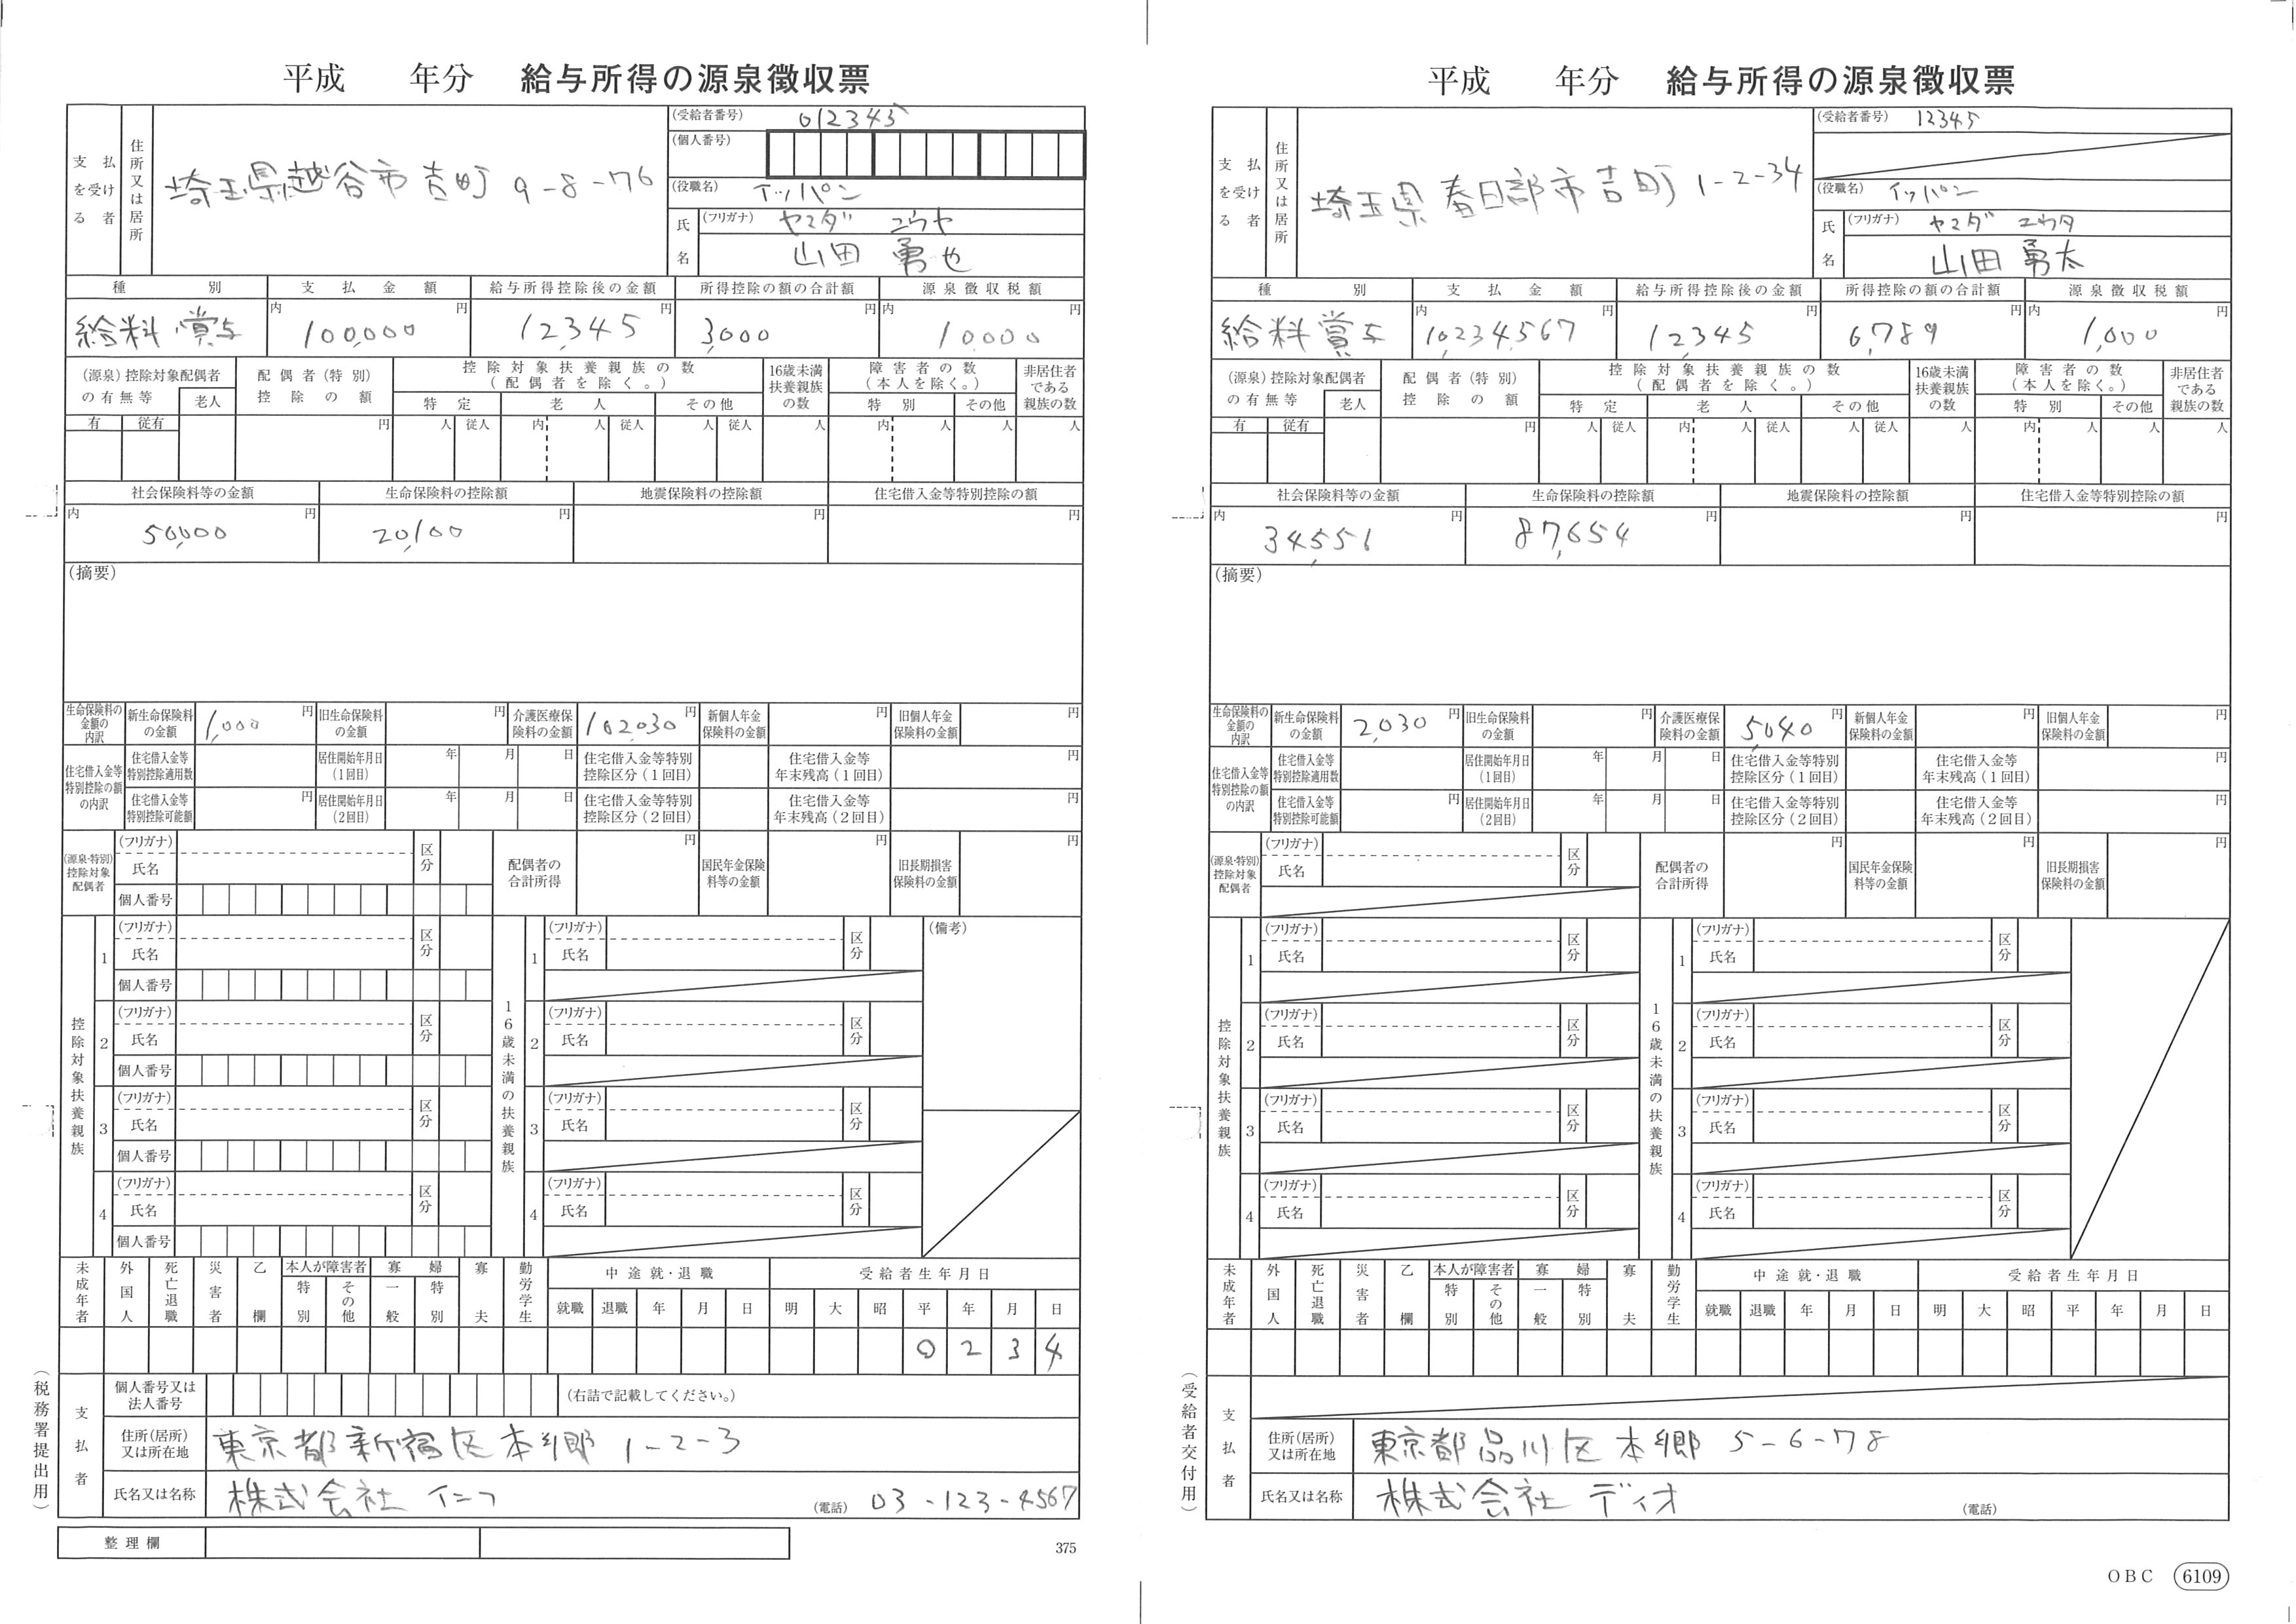 平成　　年分　給与所得の源泉徴収票
支払を受ける者
住所又は居所
埼玉県越谷市吉町 9-8-76
(受給者番号) 012345
(個人番号)
(役職名) イッパン
氏名
(フリガナ) ヤマダ ユウヤ
山田 勇也
種別 支払金額 給与所得控除後の金額 所得控除の額の合計額 源泉徴収税額
給料 賞与 内 100,000 円 12,345 円 3,000 円 内 10,000 円
(源泉)控除対象配偶者の有無等 老人 配偶者(特別)控除の額 控除対象扶養親族の数(配偶者を除く。) 16歳未満扶養親族の数 障害者の数(本人を除く。) 非居住者である親族の数
特定 老人 その他 特別 その他
有 従有 円 人 従人 内 人 従人 人 従人 人 内 人 人 人
社会保険料等の金額 生命保険料の控除額 地震保険料の控除額 住宅借入金等特別控除の額
内 50,000 円 20,100 円 円 円
(摘要)
生命保険料の金額の内訳 新生命保険料の金額 1,000 円 旧生命保険料の金額 円 介護医療保険料の金額 102,030 円 新個人年金保険料の金額 円 旧個人年金保険料の金額 円
住宅借入金等特別控除の額の内訳 住宅借入金等特別控除適用数 居住開始年月日(1回目) 年 月 日 住宅借入金等特別控除区分(1回目) 住宅借入金等年末残高(1回目) 円
住宅借入金等特別控除可能額 円 居住開始年月日(2回目) 年 月 日 住宅借入金等特別控除区分(2回目) 住宅借入金等年末残高(2回目) 円
(源泉・特別)控除対象配偶者 (フリガナ) 氏名 区分 個人番号 配偶者の合計所得 円 国民年金保険料等の金額 円 旧長期損害保険料の金額 円
控除対象扶養親族 16歳未満の扶養親族 (備考)
1 (フリガナ) 氏名 区分 個人番号 1 (フリガナ) 氏名 区分
2 (フリガナ) 氏名 区分 個人番号 2 (フリガナ) 氏名 区分
3 (フリガナ) 氏名 区分 個人番号 3 (フリガナ) 氏名 区分
4 (フリガナ) 氏名 区分 個人番号 4 (フリガナ) 氏名 区分
未成年者 外国人 死亡退職 災害者 乙欄 本人が障害者 特別 その他 寡婦 一般 特別 寡夫 勤労学生 中途就・退職 受給者生年月日
就職 退職 年 月 日 明 大 昭 平 年 月 日
0 2 3 4
(税務署提出用)
支払者
個人番号又は法人番号 (右詰で記載してください。)
住所(居所)又は所在地 東京都新宿区本郷 1-2-3
氏名又は名称 株式会社 イニフ (電話) 03-123-4567
整理欄
375
平成　　年分　給与所得の源泉徴収票
支払を受ける者
住所又は居所
埼玉県春日部市吉町 1-2-34
(受給者番号) 12345
(役職名) イッパン
氏名
(フリガナ) ヤマダ ユウタ
山田 勇太
種別 支払金額 給与所得控除後の金額 所得控除の額の合計額 源泉徴収税額
給料 賞与 内 10,234,567 円 12,345 円 6,789 円 内 1,000 円
(源泉)控除対象配偶者の有無等 老人 配偶者(特別)控除の額 控除対象扶養親族の数(配偶者を除く。) 16歳未満扶養親族の数 障害者の数(本人を除く。) 非居住者である親族の数
特定 老人 その他 特別 その他
有 従有 円 人 従人 内 人 従人 人 従人 人 内 人 人 人
社会保険料等の金額 生命保険料の控除額 地震保険料の控除額 住宅借入金等特別控除の額
内 34,551 円 87,654 円 円 円
(摘要)
生命保険料の金額の内訳 新生命保険料の金額 2,030 円 旧生命保険料の金額 円 介護医療保険料の金額 5,040 円 新個人年金保険料の金額 円 旧個人年金保険料の金額 円
住宅借入金等特別控除の額の内訳 住宅借入金等特別控除適用数 居住開始年月日(1回目) 年 月 日 住宅借入金等特別控除区分(1回目) 住宅借入金等年末残高(1回目) 円
住宅借入金等特別控除可能額 円 居住開始年月日(2回目) 年 月 日 住宅借入金等特別控除区分(2回目) 住宅借入金等年末残高(2回目) 円
(源泉・特別)控除対象配偶者 (フリガナ) 氏名 区分 配偶者の合計所得 円 国民年金保険料等の金額 円 旧長期損害保険料の金額 円
控除対象扶養親族 16歳未満の扶養親族
1 (フリガナ) 氏名 区分 1 (フリガナ) 氏名 区分
2 (フリガナ) 氏名 区分 2 (フリガナ) 氏名 区分
3 (フリガナ) 氏名 区分 3 (フリガナ) 氏名 区分
4 (フリガナ) 氏名 区分 4 (フリガナ) 氏名 区分
未成年者 外国人 死亡退職 災害者 乙欄 本人が障害者 特別 その他 寡婦 一般 特別 寡夫 勤労学生 中途就・退職 受給者生年月日
就職 退職 年 月 日 明 大 昭 平 年 月 日
(受給者交付用)
支払者
住所(居所)又は所在地 東京都品川区本郷 5-6-78
氏名又は名称 株式会社 ディオ (電話)
OBC 6109